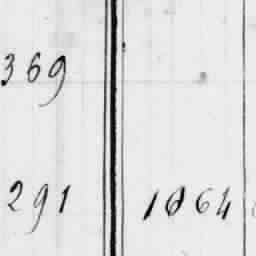 369
291 1064